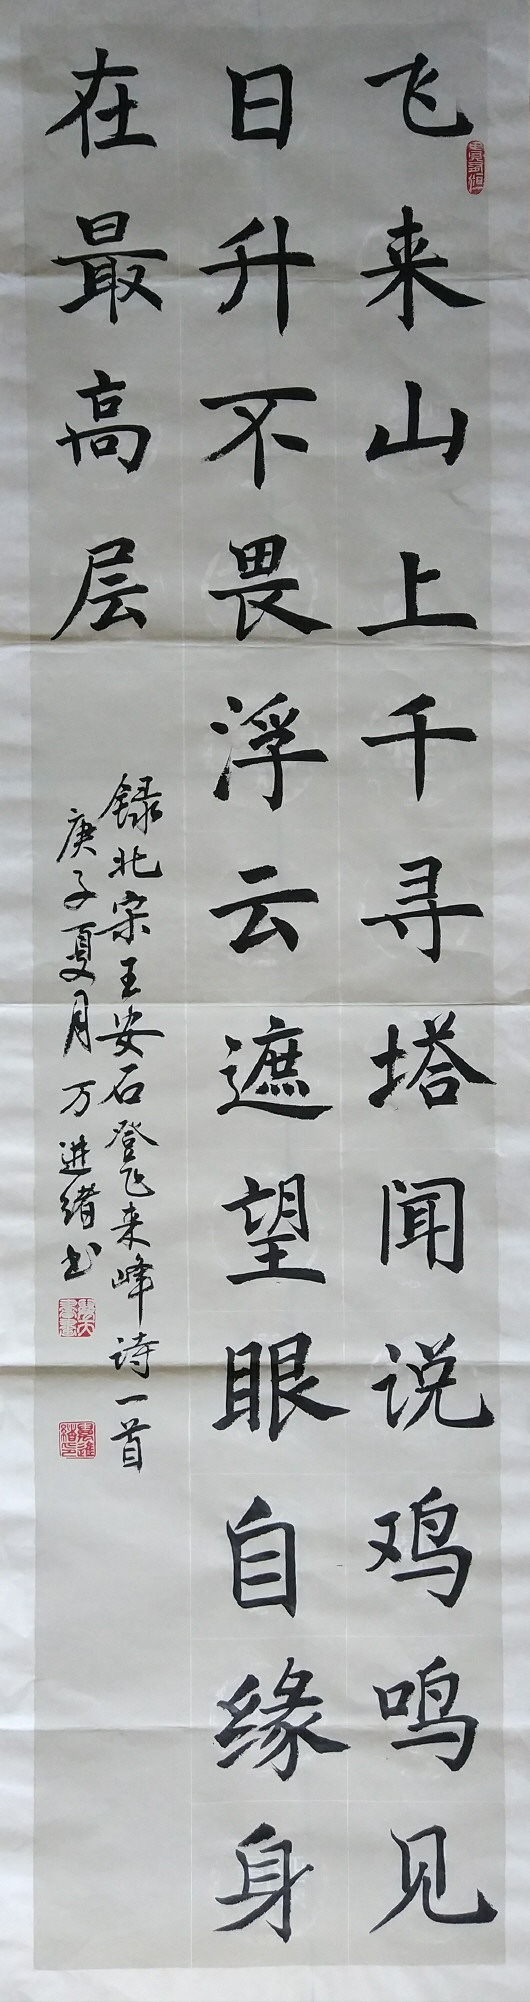 飞来山上千寻塔闻说鸡鸣见
日升不畏浮云遮望眼自缘身
在最高层
録北宋王安石登飞来峰诗一首
庚子夏月万进绪书